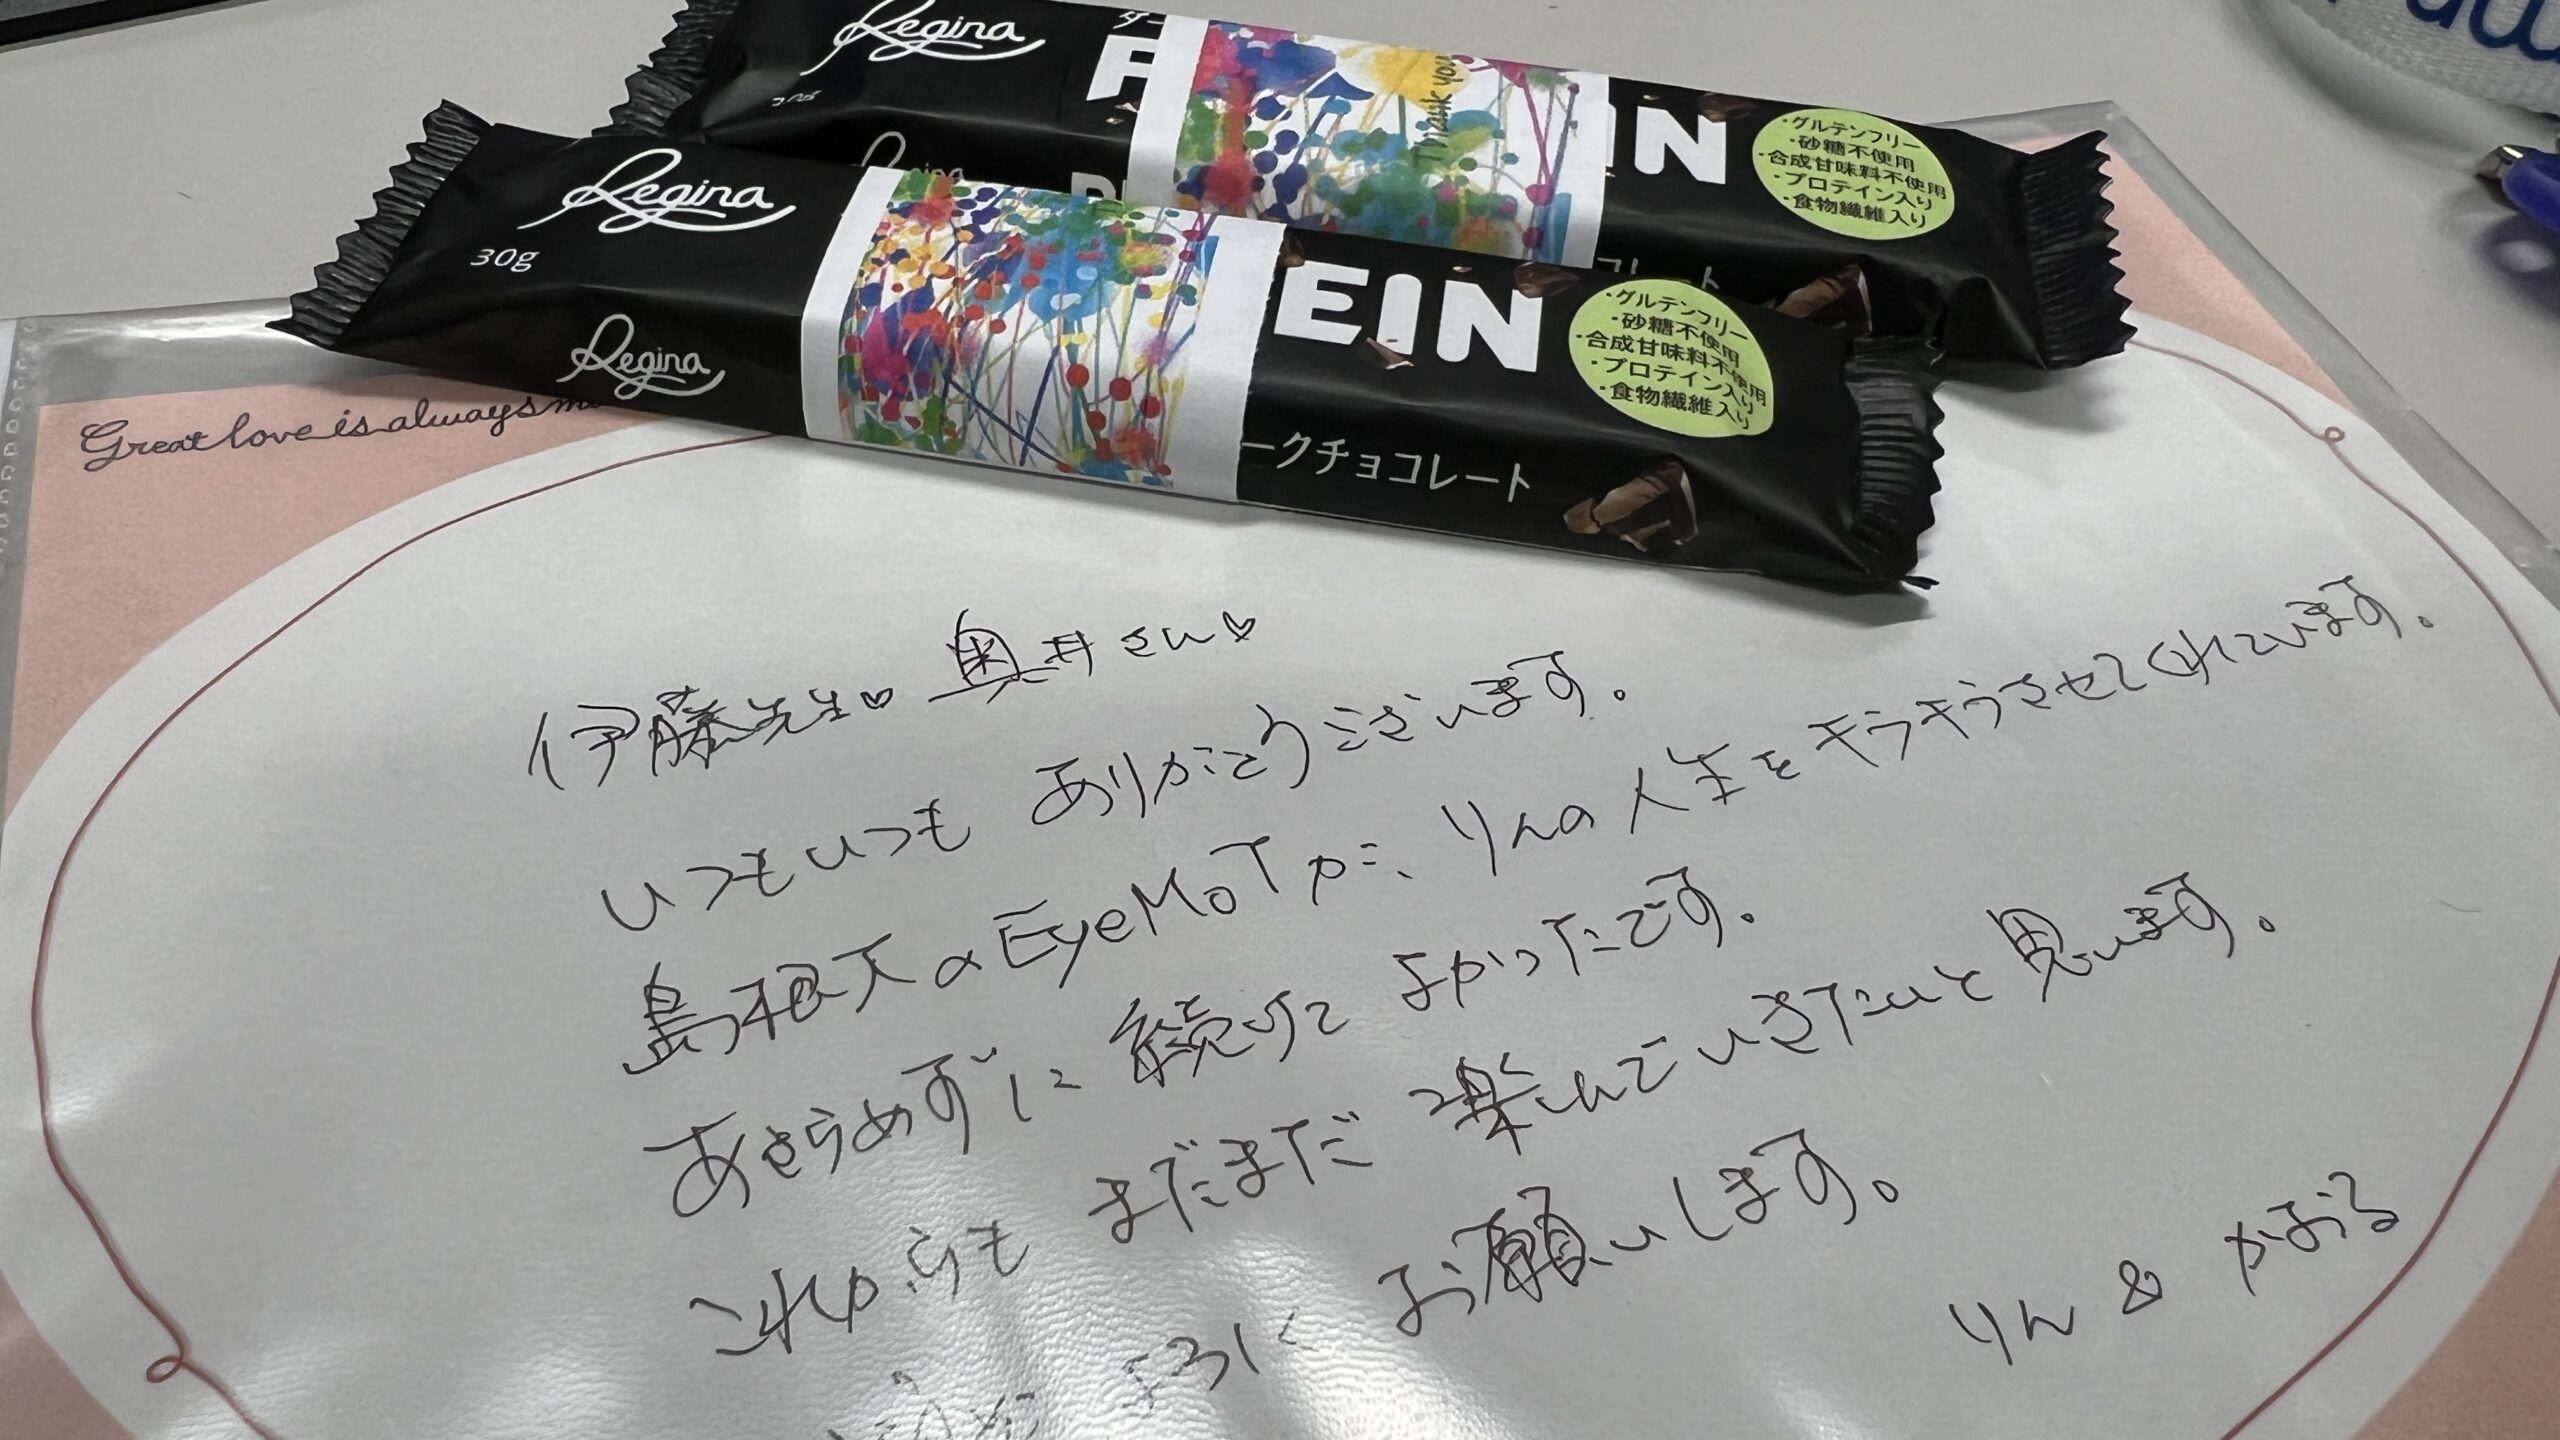 Regina
Thank you
IN
・グルテンフリー
・砂糖不使用
・合成甘味料不使用
・プロテイン入り
・食物繊維入り
コレート
Regina
30g
Regina
EIN
・グルテンフリー
・砂糖不使用
・合成甘味料不使用
・プロテイン入り
・食物繊維入り
ークチョコレート
Great love is always
伊藤先生♡ 奥井さん♡
いつもいつも ありがとうございます。
島根大のEyeMoTが、りんの人生をキラキラさせてくれています。
あきらめずに続けて よかったです。
これからも まだまだ 楽しんでいきたいと思います。
お願いします。
りん & かおる